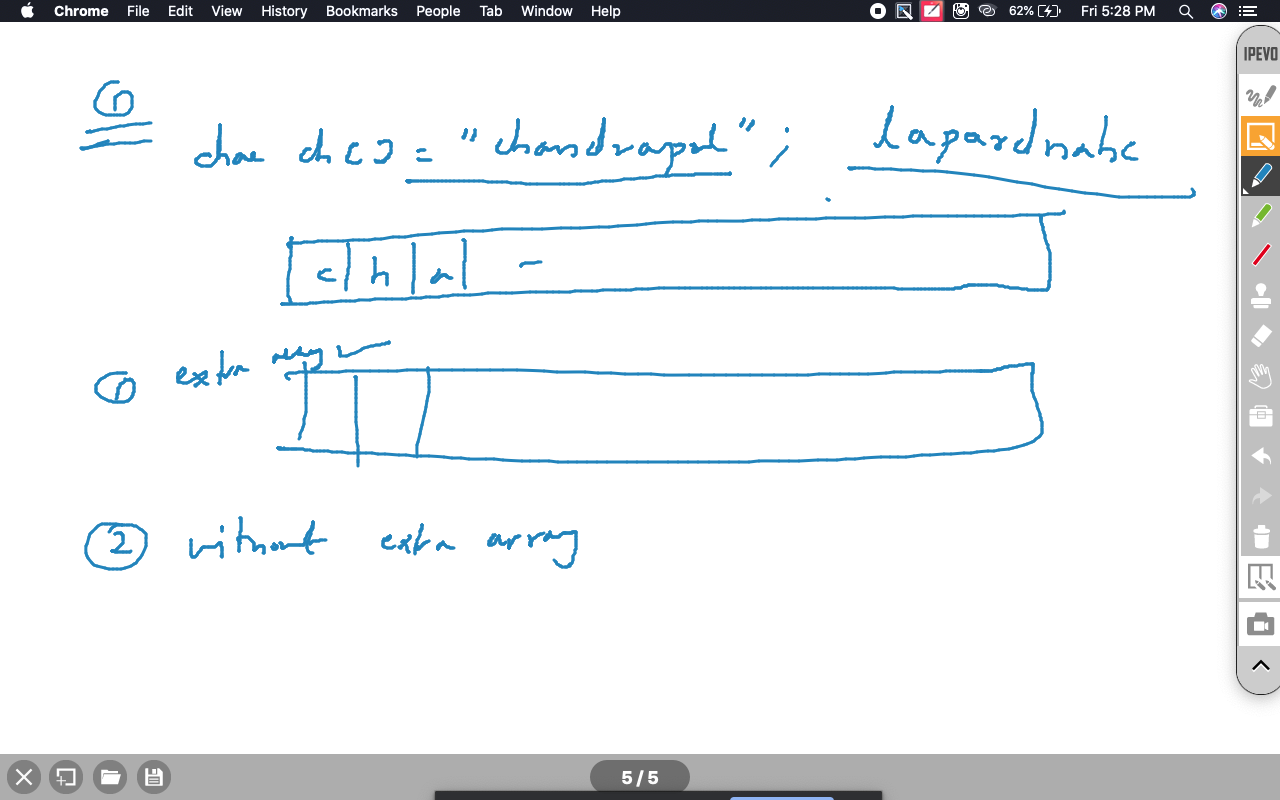 Chrome File Edit View History Bookmarks People Tab Window Help 62% Fri 5:28 PM
IPEVO
①
char ch[] = "chandrapal"; lapardnahc
c h a -
① extra array ✓
② without extra array
5 / 5